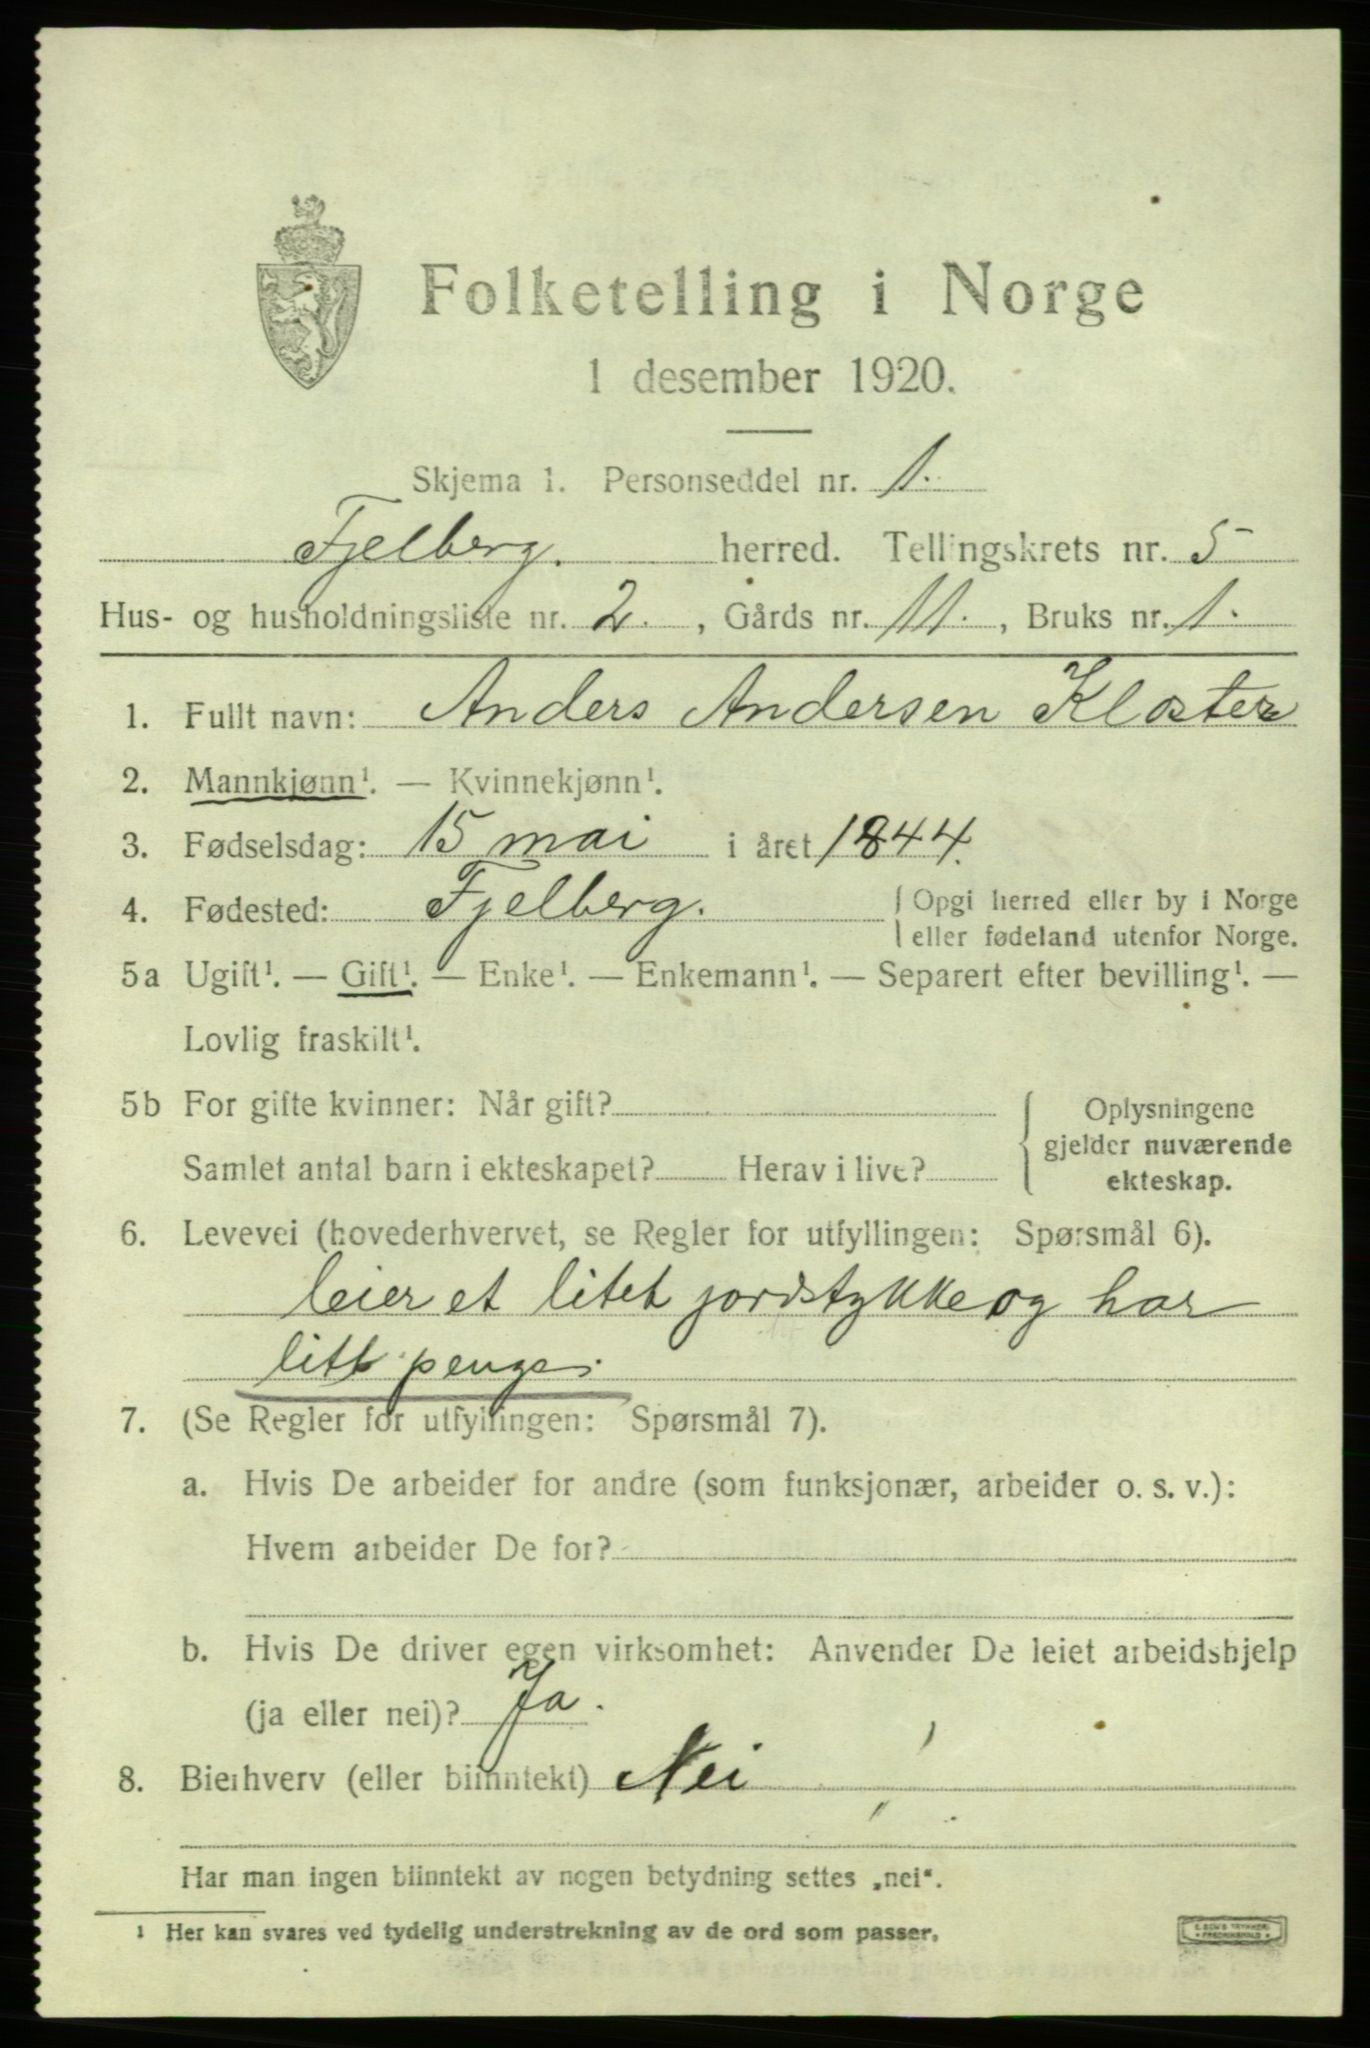 Folketelling i Norge
1 desember 1920.
Skjema 1. Personseddel nr. 1.
Fjelberg. herred. Tellingskrets nr. 5
Hus- og husholdningsliste nr. 2. , Gårds nr. 11. , Bruks nr. 1.
1. Fullt navn: Anders Andersen Kloster
2. Mannkjønn¹. — Kvinnekjønn¹.
3. Fødselsdag: 15 mai i året 1844.
4. Fødested: Fjelberg. Opgi herred eller by i Norge
eller fødeland utenfor Norge.
5a Ugift¹. — Gift¹. — Enke¹. — Enkemann¹. — Separert efter bevilling¹. —
Lovlig fraskilt¹.
5b For gifte kvinner: Når gift? Oplysningene
gjelder nuværende
Samlet antal barn i ekteskapet? Herav i live? ekteskap.
6. Levevei (hovederhvervet, se Regler for utfyllingen: Spørsmål 6).
leier et litet jordstykke og har
litt penge.
7. (Se Regler for utfyllingen: Spørsmål 7).
a. Hvis De arbeider for andre (som funksjonær, arbeider o. s. v.):
Hvem arbeider De for?
b. Hvis De driver egen virksomhet: Anvender De leiet arbeidshjelp
(ja eller nei)? Ja.
8. Bierhverv (eller biinntekt) Nei
Har man ingen biinntekt av nogen betydning settes „nei“.
¹ Her kan svares ved tydelig understrekning av de ord som passer.